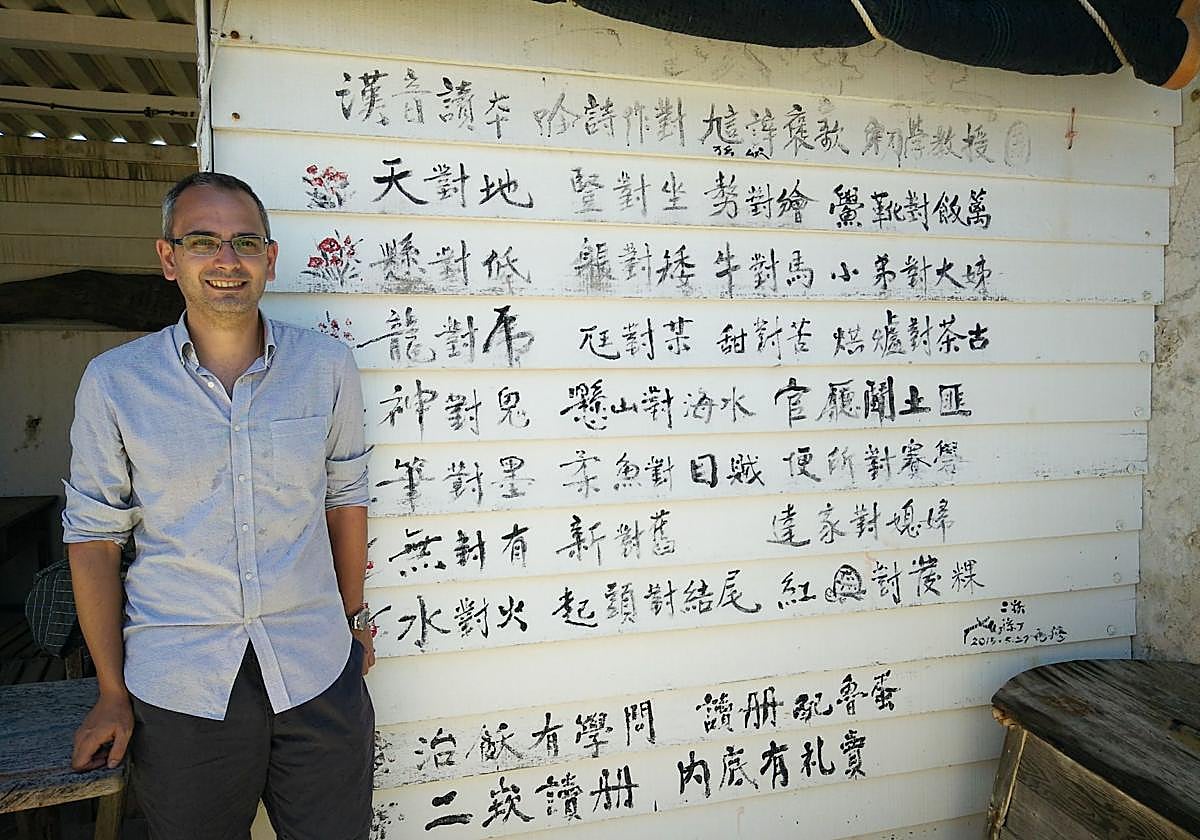 漢音讀本 吟詩作對 褒歌 初學教授
天對地 竪對坐 對繪 靴對飯萬
懸對低 對矮 牛對馬 小弟對大姊
龍對虎 尫對某 甜對苦 烘爐對茶古
神對鬼 懸山對海水 官廳鬪土匪
筆對墨 柔魚對目賊 便所對寮
無對有 新對舊 達家對媳婦
水對火 起頭對結尾 紅對發粿
二崁
2015.5.27
治 有學問 讀册配魯蛋
二崁讀册 內底有礼賣